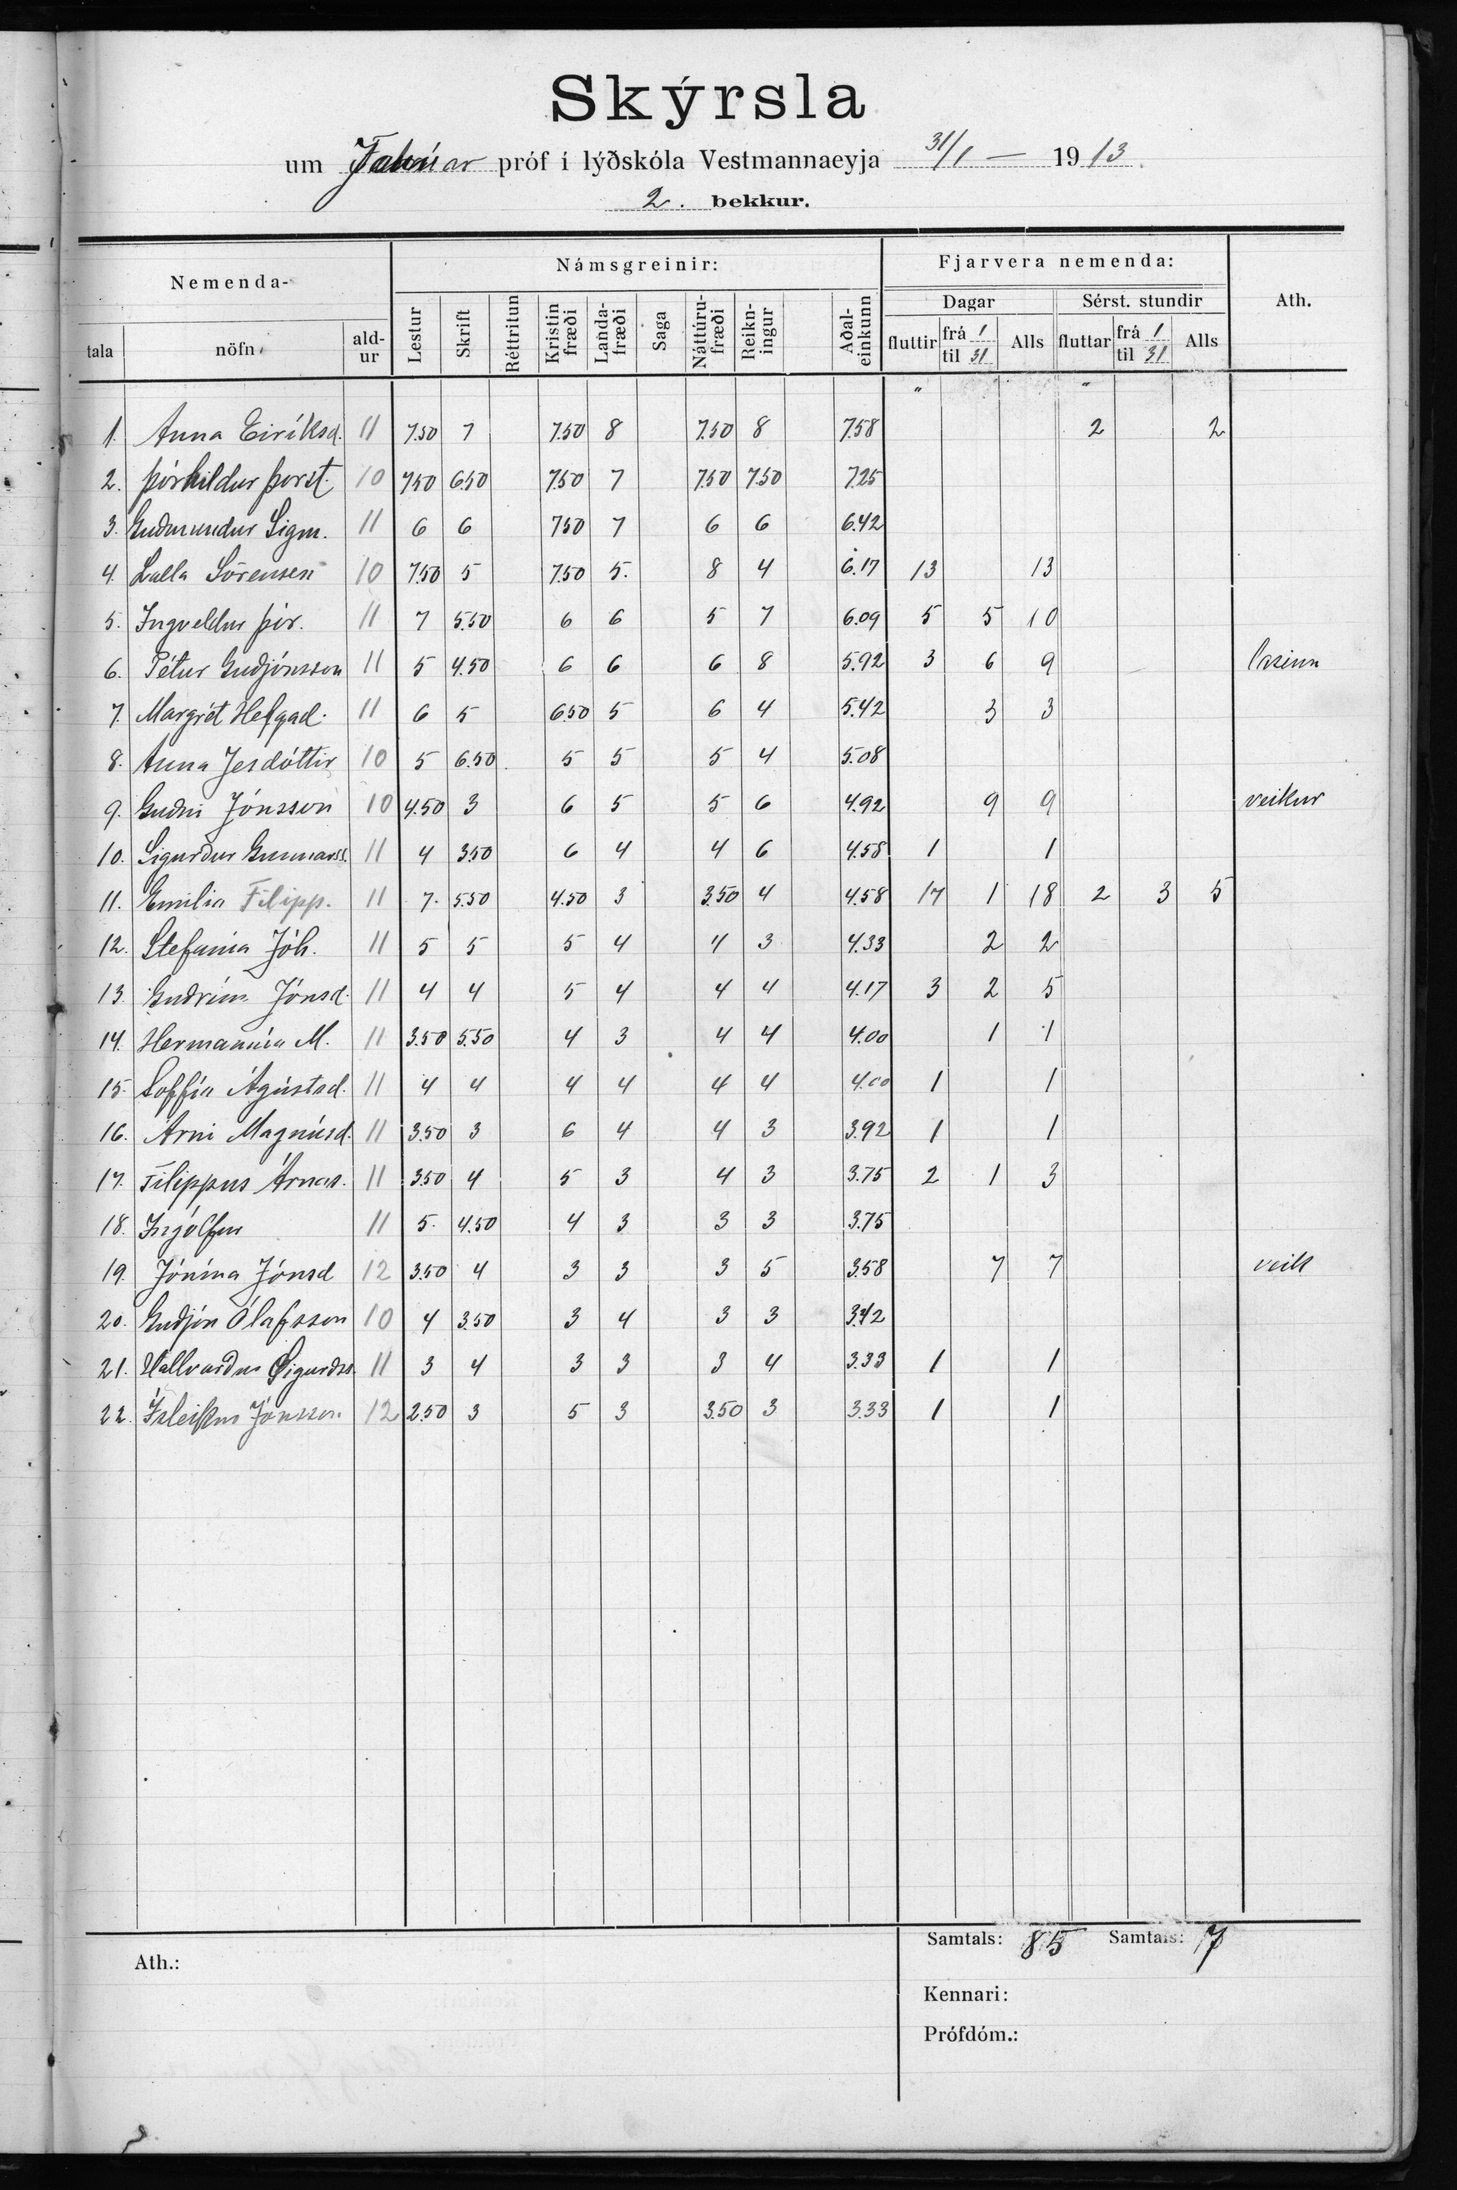 Skýrsla
um Janúar próf í lýðskóla Vestmannaeyja 31/1 — 1913.
2. bekkur.
Nemenda- Námsgreinir: Fjarvera nemenda: Ath.
Dagar Sérst. stundir
tala nöfn ald-ur Lestur Skrift Réttritun Kristin fræði Landa-fræði Saga Náttúru-fræði Reikn-ingur Aðal-einkunn fluttir frá 1 til 31 Alls fluttar frá 1 til 31 Alls
" "
1. Anna Eiríksd. 11 7.50 7 7.50 8 7.50 8 7.58 2 2
2. Þórhildur Þorst. 10 7.50 6.50 7.50 7 7.50 7.50 7.25
3. Guðmundur Sigm. 11 6 6 7.50 7 6 6 6.42
4. Lalla Sörensen 10 7.50 5 7.50 5. 8 4 6.17 13 13
5. Ingveldur Þór. 11 7 5.50 6 6 5 7 6.09 5 5 10
6. Pétur Guðjónsson 11 5 4.50 6 6 6 8 5.92 3 6 9 lasinn
7. Margrét Helgad. 11 6 5 6.50 5 6 4 5.42 3 3
8. Anna Jesdóttir 10 5 6.50 5 5 5 4 5.08
9. Guðni Jónsson 10 4.50 3 6 5 5 6 4.92 9 9 veikur
10. Sigurður Gunnarss. 11 4 3.50 6 4 4 6 4.58 1 1
11. Emilia Filipp. 11 7. 5.50 4.50 3 3.50 4 4.58 17 1 18 2 3 5
12. Stefanía Jóh. 11 5 5 5 4 4 3 4.33 2 2
13. Guðrún Jónsd. 11 4 4 5 4 4 4 4.17 3 2 5
14. Hermannía M. 11 3.50 5.50 4 3 4 4 4.00 1 1
15. Soffía Ágústsd. 11 4 4 4 4 4 4 4.00 1 1
16. Árni Magnúsd. 11 3.50 3 6 4 4 3 3.92 1 1
17. Filippus Árnas. 11 3.50 4 5 3 4 3 3.75 2 1 3
18. Ingólfur 11 5. 4.50 4 3 3 3 3.75
19. Jónína Jónsd 12 3.50 4 3 3 3 5 3.58 7 7 veik
20. Guðjón Ólafsson 10 4 3.50 3 4 3 3 3.42
21. Hallvarður Sigurðss. 11 3 4 3 3 3 4 3.33 1 1
22. Ísleikur Jónsson 12 2.50 3 5 3 3.50 3 3.33 1 1
Samtals: 85 Samtals: 7
Ath.:
Kennari:
Prófdóm.: